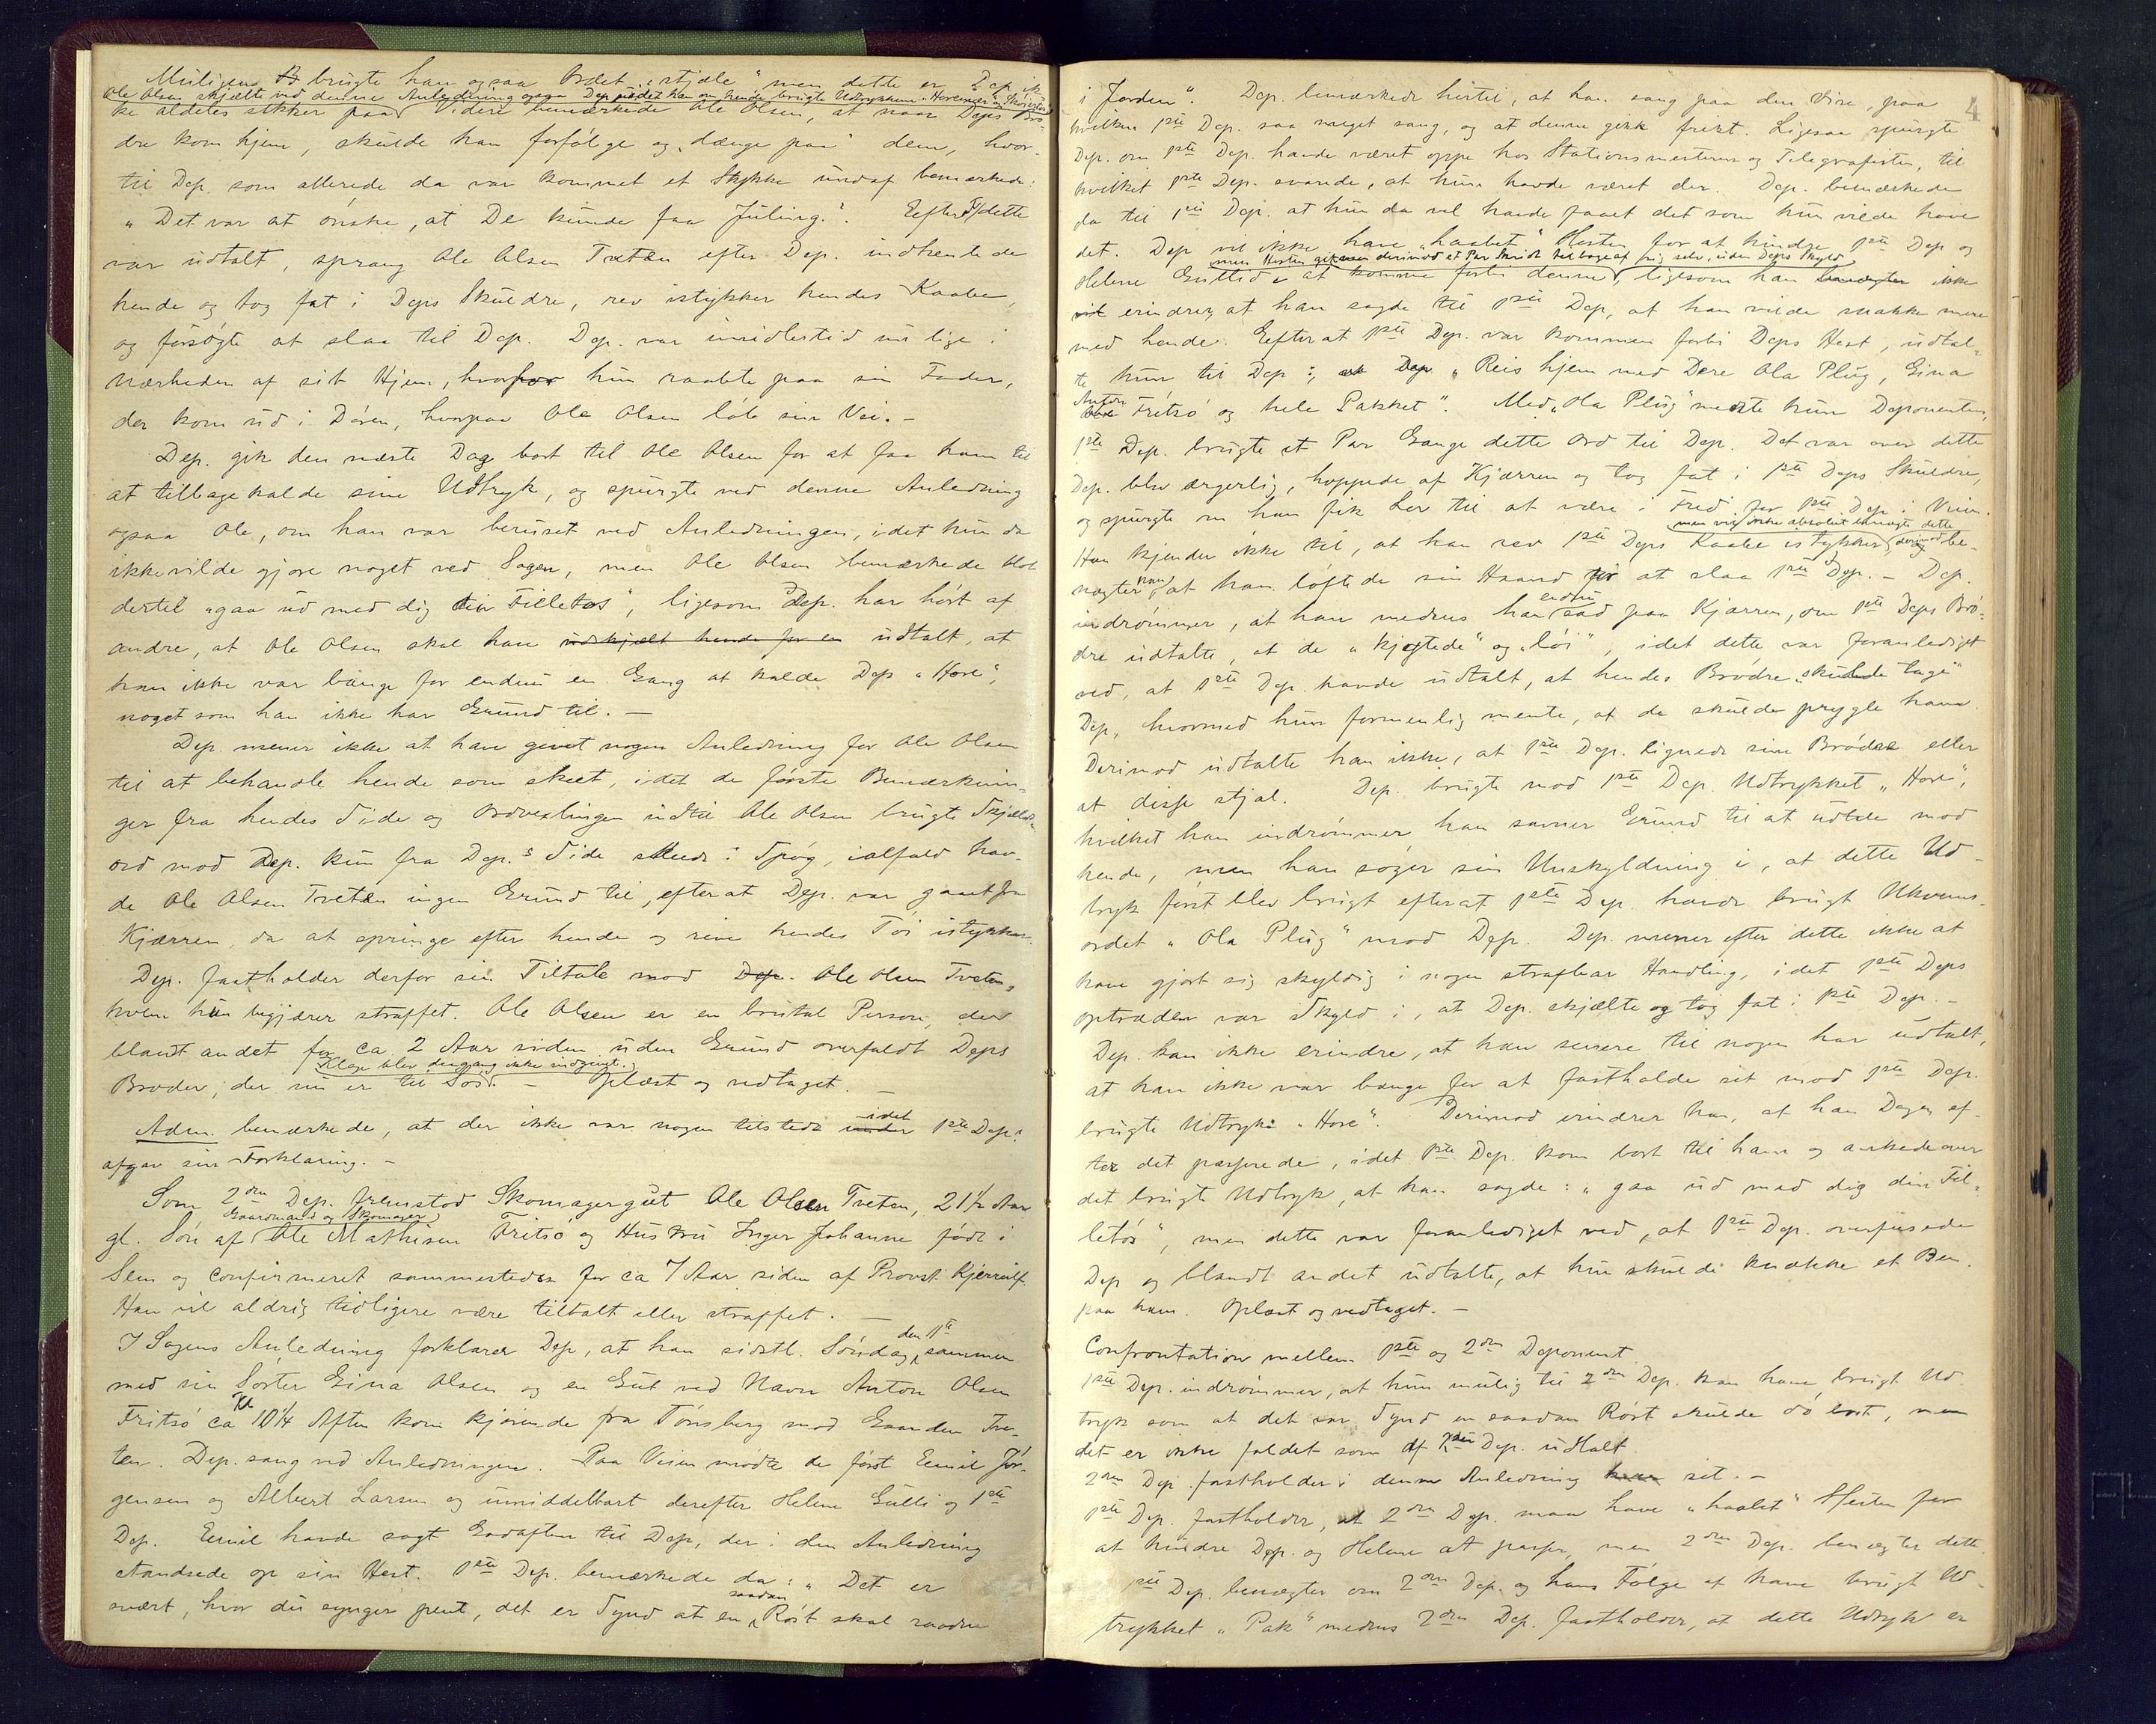 Muligens brugte han ogsaa Ordet "stjæle" men dette er Dep. ik-
Ole Olsen skjælte ved denne Anledning ogsaa Dep. idet han om hende brugte Udtrykkene "Hore
ke aldeles sikker paa. Videre bemærkede Ole Olsen, at naar Deps Brø-
dre kom hjem, skulde han forfølge og "dænge paa" dem, hvor-
til Dep. som allerede da var kommet et Stykke undaf bemærkede:
"Det var at ønske, at De kunde faa Juling". Efterat dette
var udtalt, sprang Ole Olsen Treten efter Dep. indhentede
hende og tog fat i Deps Skuldre, rev istykker hendes Kaabe,
og forsøgte at slaa til Dep. Dep. var imidlertid nu lige i
Nærheden af sit Hjem, hvorfor hun raabte paa sin Fader,
der kom ud i Døren, hvorpaa Ole Olsen løb sin Vei. -
Dep. gik den næste Dag bort til Ole Olsen for at faa ham til
at tilbagekalde sine Udtryk, og spurgte ved denne Anledning
ogsaa Ole, om han var beruset ved Anledningen, idet hun da
ikke vilde gjøre noget ved Sagen, men Ole Olsen bemærkede blot
dertil "gaa ud med dig din Filletøs", ligesom Dep. har hørt af
andre, at Ole Olsen skal have udskjælt hende for en udtalt, at
han ikke var bange for endnu en Gang at kalde Dep "Hore",
noget som han ikke har Grund til. -
Dep. mener ikke at have givet nogen Anledning for Ole Olsen
til at behandle hende som skeet, idet de første Bemærknin-
ger fra hendes Side og Ordvexlingen indtil Ole Olsen brugte Skjælds-
ord mod Dep. kun fra Dep.s Side skede i Spøg, ialfald hav-
de Ole Olsen Treten ingen Grund til, efterat Dep. var gaaet fra
Kjærren, da at springe efter hende og rive hendes Tøi istykker.
Dep. fastholder derfor sin Tiltale mod Dep. Ole Olsen Treten,
hvem hun begjærer straffet. Ole Olsen er en brutal Person, der
blandt andet for ca 2 Aar siden uden Grund overfaldt Deps
Klage blev dengang ikke indgivet.
Broder, der nu er til Søs. - Oplæst og vedtaget. -
Adm. bemærkede, at der ikke var nogen tilstede under idet 1ste Dep.
afgav sin Forklaring. -
Som 2den Dep. fremstod Skomagergut Ole Olsen Treten, 21 1/2 Aar
Gaardmand og Skomager
gl. Søn af Ole Mathisen Fritsø og Hustru Inger Johanne født i
Sem og confirmeret sammesteds for ca 7 Aar siden af Provst Kjerulf.
Han vil aldrig tidligere være tiltalt eller straffet. -
I Sagens Anledning forklarer Dep, at han sidstl. Søndag den 11te sammen
med sin Søster Gina Olsen og en Gut ved Navn Anton Olsen
Fritsø ca Kl 10 1/4 Aften kom kjørende fra Tønsberg mod Gaarden Tre-
ten. Dep. sang ved Anledningen. Paa Veien mødte de først Emil Jør-
gensen og Albert Larsen og umiddelbart derefter Helene Gulli og 1ste
Dep. Emil havde sagt Godaften til Dep, der i den Anledning
standsede op sin Hest. 1ste Dep. bemærkede da: "Det er
svært, hvor du synger pent, det er Synd at en saadan Røst skal raadne
4
i Jorden". Dep. bemærkede hertil, at han sang paa den Vise, paa
hvilken 1ste Dep. saa meget sang, og at denne gikk frist. Ligesaa spurgte
Dep. om 1ste Dep. havde været oppe hos Stationsmesteren og Telegrafisten, til
hvilket 1ste Dep. svarede, at hun havde været der. Dep. bemærkede
da til 1ste Dep. at hun da vel havde faaet det som hun vilde have
det. Dep vil ikke have "haabet" Hesten for at hindre 1ste Dep og
men Hesten gik derimod et Par Skridt tilbage af sig selv, uden Deps Skyld
Helene Gulli i at komme forbi denne, ligesom han benægter ikke
vil erindrer, at han sagde til 1ste Dep, at han vilde snakke mere
med hende. Efterat 1ste Dep. var kommen forbi Deps Hest, udtal-
te hun til Dep:, "Reis hjem med Dere Ola Plug, Gina
Anton Fritsø og hele Pakket". Med "Ola Plug" mente hun Deponenten,
1ste Dep. brugte et Par Gange dette Ord til Dep. Det var over dette
Dep. blev ærgerlig, hoppede af Kjærren og tog fat i 1ste Deps Skuldre,
og spurgte om han fik Lov til at være i Fred for 1ste Dep i Veien.
men vil ikke absolut benægte dette
Han kjender ikke til, at han rev 1ste Deps Kaabe istykker, derimod be-
nægter han, at han løftede sin Haand for at slaa 1ste Dep. - Dep.
indrømmer, at han medens han endnu sad paa Kjærren, om 1ste Deps Brø-
dre udtalte, at de "kjegtede" og "løi", idet dette var foranlediget
ved, at 1ste Dep. havde udtalt, at hendes Brødre "skulde tage"
Dep, hvormed hun formentlig mente, at de skulde prygle ham.
Derimod udtalte han ikke, at 1ste Dep. lignede sine Brødre eller
at disse stjal. Dep. brugte mod 1ste Dep. Udtrykket "Hore",
hvilket han indrømmer han savner Grund til at udtale mod
hende, men han søger sin Undskyldning i, at dette Ud-
tryk først blev brugt efterat 1ste Dep. havde brugt Ukvems-
ordet "Ola Plug" mod Dep. Dep. mener efter dette ikke at
have gjort sig skyldig i nogen strafbar Handling, idet 1ste Deps
Optræden var Skyld i, at Dep. skjælte og tog fat i 1ste Dep. -
Dep. kan ikke erindre, at han senere til nogen har udtalt,
at han ikke var bange for at fastholde sit mod 1ste Dep.
brugte Udtryk: "Hore". Derimod erindrer han, at han Dagen ef-
ter det passerede, idet 1ste Dep. kom bort til ham og ankede over
det brugte Udtryk, at han sagde: "gaa ud med dig din Fil-
letøs", men dette var foranlediget ved, at 1ste Dep. overfusede
Dep og blandt andet udtalte, at hun skulde knække et Ben
paa ham. Oplæst og vedtaget. -
Confrontation mellem 1ste og 2den Deponent
1ste Dep. indrømmer, at hun mulig til 2den Dep. kan have brugt Ud-
tryk som at det var Synd en saadan Røst skulde dø bort, men
det er ikke faldet som af 2den Dep. udtalt.
2den Dep. fastholder i denne Anledning sit. -
1ste Dep. fastholder, at 2den Dep. maa have "haalet" Hesten for
at hindre Dep. og Helene at passere, men 2den Dep. benægter dette.
1ste Dep. benægter om 2den Dep. og hans Følge at have brugt Ud-
trykket "Pak" medens 2den Dep. fastholder, at dette Udtryk er